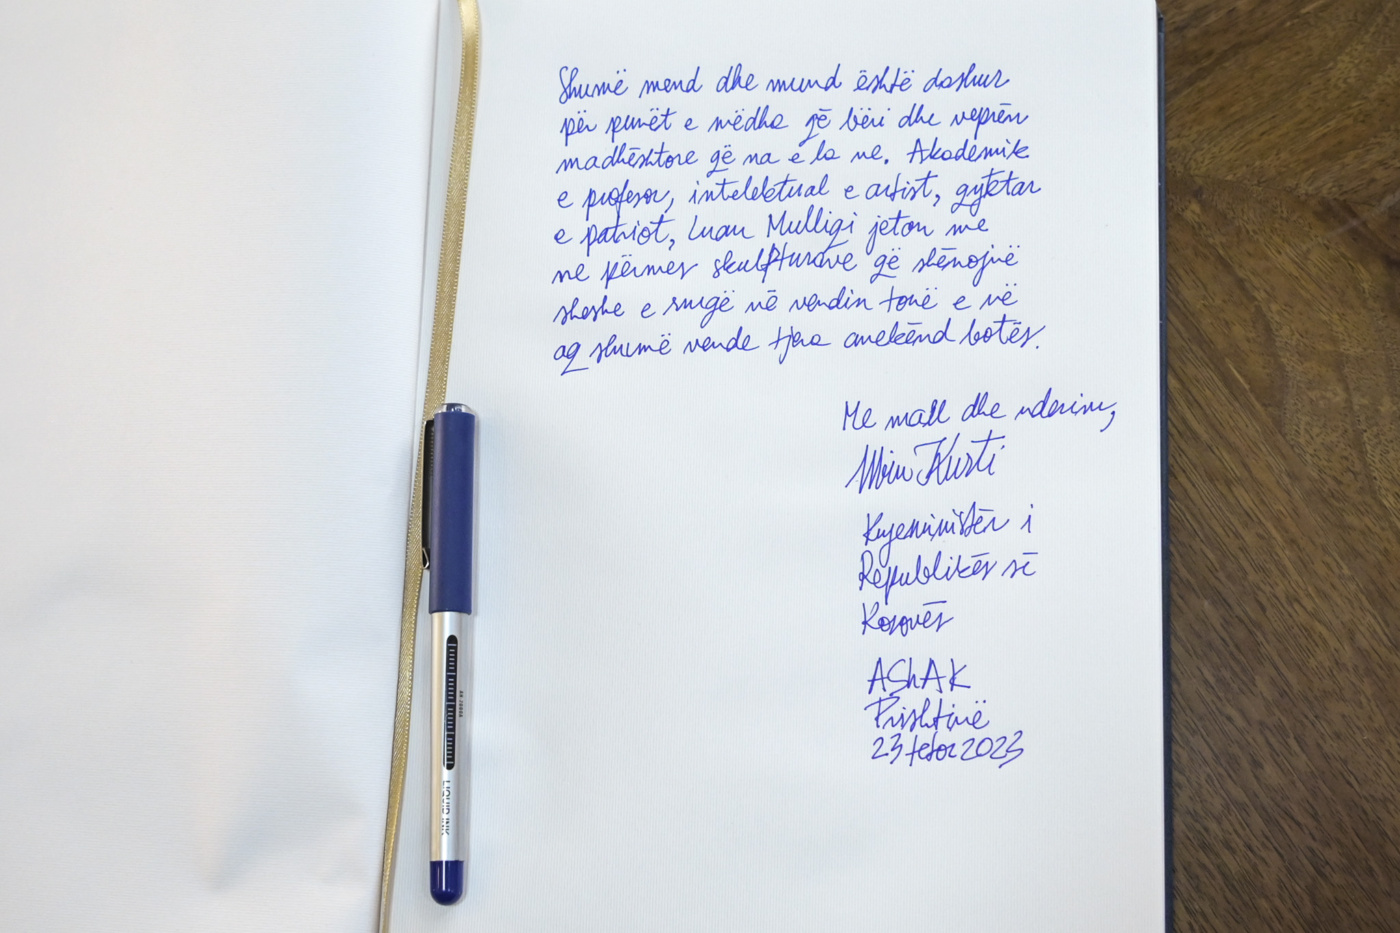 Shumë mend dhe mund është dashur
për punët e mëdha që bëri dhe veprën
madhështore që na e la ne. Akademik
e profesor, intelektual e artist, qytetar
e patriot, Luan Mulliqi jeton me
ne përmes skulpturave që shënojnë
sheshe e rrugë në vendin tonë e në
aq shumë vende tjera anekënd botës.
Me mall dhe nderim,
Albin Kurti
Kryeministër i
Republikës së
Kosovës
AShAK
Prishtinë
23 tetor 2023
LIQUID INK